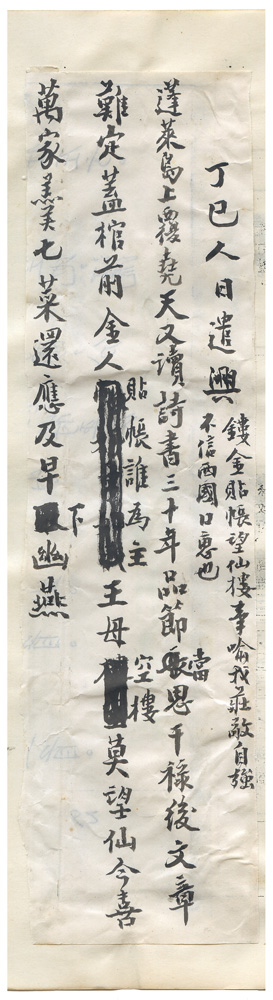 丁巳人日遣興
鏤金貼帳望仙樓幸喻我莊敬自強
不信西國口惠也
蓬萊島上覆堯天又讀詩書三十年品節當思干祿後文章
難定蓋棺前金人貼帳誰為主王母空樓莫望仙今喜
萬家羹七菜還應及早下幽燕